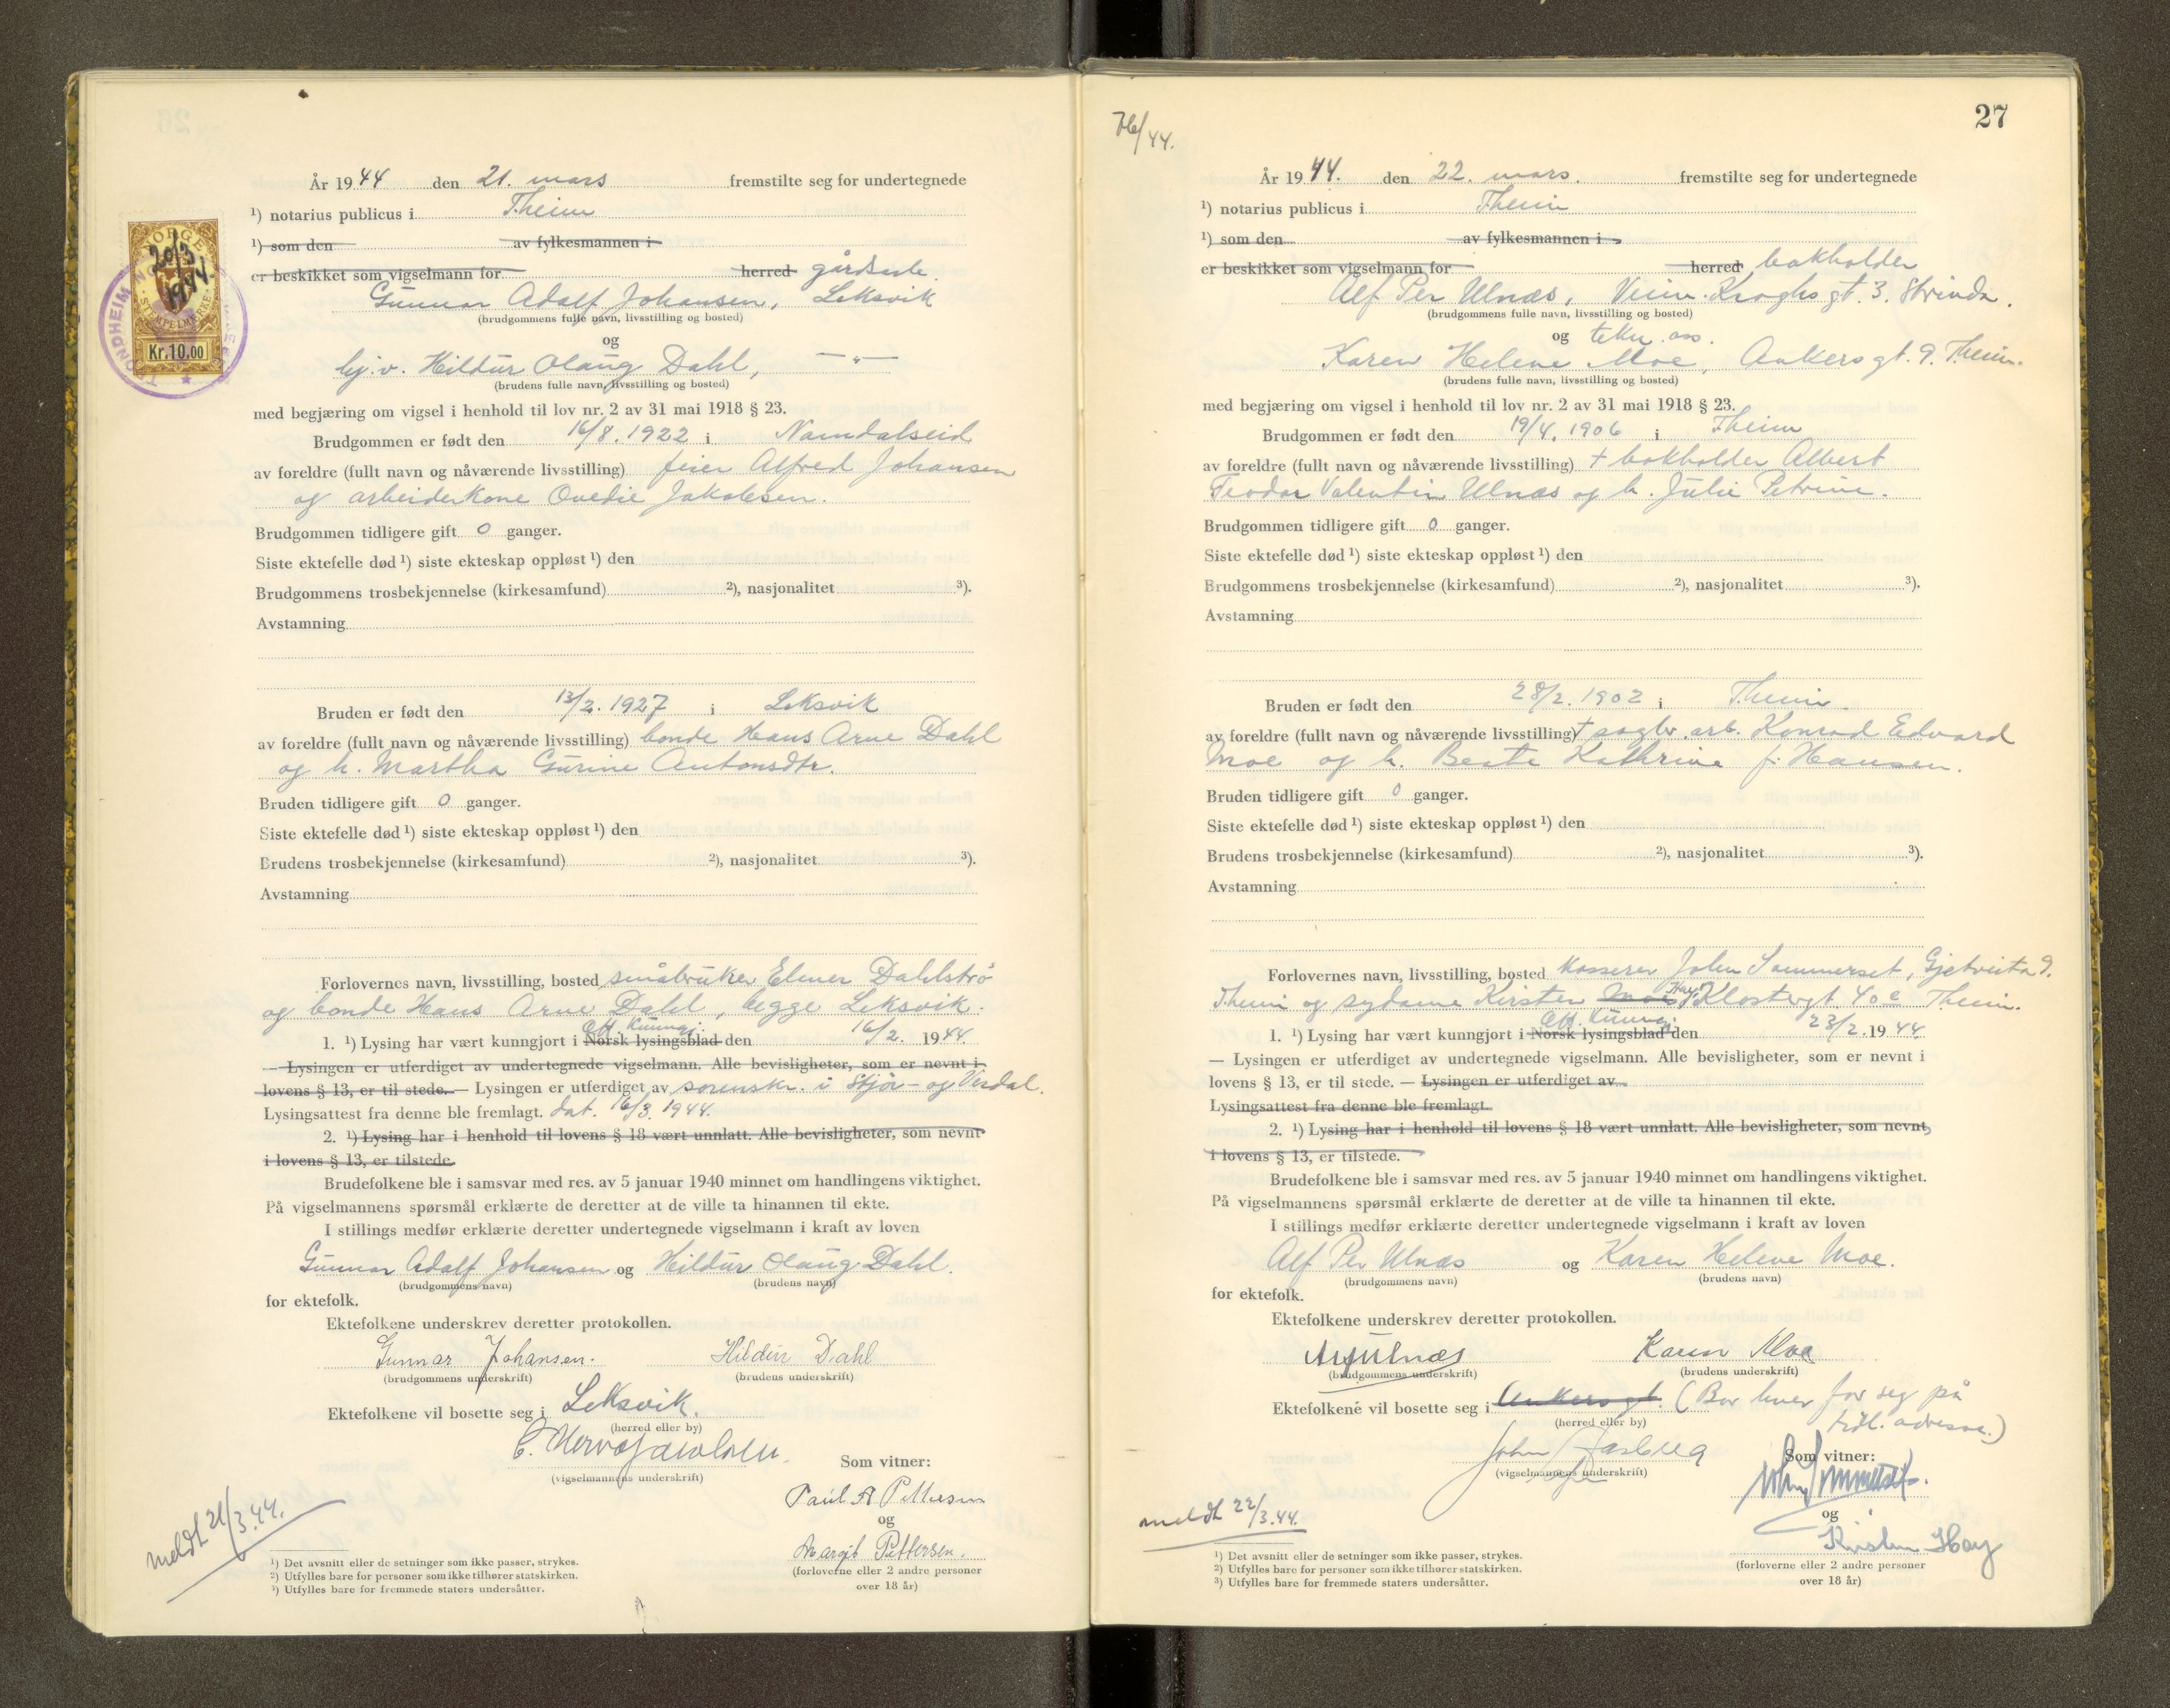 År 1944 den 21. mars fremstilte seg for undertegnede
¹) notarius publicus i Theim
¹) som den av fylkesmannen i
er beskikket som vigselmann for herred
Gunnar Adolf Johansen, Leksvik
(brudgommens fulle navn, livsstilling og bosted)
og
hj.v. Hildur Olaug Dahl, — " —
(brudens fulle navn, livsstilling og bosted)
med begjæring om vigsel i henhold til lov nr. 2 av 31 mai 1918 § 23.
Brudgommen er født den 16/8. 1922 i Namdalseid
av foreldre (fullt navn og nåværende livsstilling) feier Alfred Johansen
og arbeiderkone Ovedie Jakobsen.
Brudgommen tidligere gift 0 ganger.
Siste ektefelle død ¹) siste ekteskap oppløst ¹) den
Brudgommens trosbekjennelse (kirkesamfund) ²), nasjonalitet ³).
Avstamning
Bruden er født den 13/2. 1927 i Leksvik
av foreldre (fullt navn og nåværende livsstilling) bonde Hans Arne Dahl
og h. Martha Gurine Antonsdtr.
Bruden tidligere gift 0 ganger.
Siste ektefelle død ¹) siste ekteskap oppløst ¹) den
Brudens trosbekjennelse (kirkesamfund) ²), nasjonalitet ³).
Avstamning
Forlovernes navn, livsstilling, bosted småbruker Elmer Dahlstrø
og bonde Hans Arne Dahl, begge Leksvik.
Off. Kunngj.
1. ¹) Lysing har vært kunngjort i Norsk lysingsblad den 16/2. 1944
— Lysingen er utferdiget av undertegnede vigselmann. Alle bevisligheter, som er nevnt i
lovens § 13, er til stede. — Lysingen er utferdiget av sorenskr. i Stjør- og Verdal.
Lysingsattest fra denne ble fremlagt. dat. 16/3. 1944.
2. ¹) Lysing har i henhold til lovens § 18 vært unnlatt. Alle bevisligheter, som nevnt
i lovens § 13, er tilstede.
Brudefolkene ble i samsvar med res. av 5 januar 1940 minnet om handlingens viktighet.
På vigselmannens spørsmål erklærte de deretter at de ville ta hinannen til ekte.
I stillings medfør erklærte deretter undertegnede vigselmann i kraft av loven
Gunnar Adolf Johansen og Hildur Olaug Dahl.
(brudgommens navn) (brudens navn)
for ektefolk.
Ektefolkene underskrev deretter protokollen.
Gunnar Johansen. Hildur Dahl
(brudgommens underskrift) (brudens underskrift)
Ektefolkene vil bosette seg i Leksvik.
(herred eller by)
(vigselmannens underskrift)
Som vitner:
Paul A Pettersen
og
Margit Pettersen.
(forloverne eller 2 andre personer
over 18 år)
meldt 21/3.44.
¹) Det avsnitt eller de setninger som ikke passer, strykes.
²) Utfylles bare for personer som ikke tilhører statskirken.
³) Utfylles bare for fremmede staters undersåtter.
NORGE
20/3
1944
STEMPELMERKE
Kr.10.00
TRONDHEIM
76/44.
27
År 1944. den 22. mars. fremstilte seg for undertegnede
¹) notarius publicus i Theim
¹) som den av fylkesmannen i
er beskikket som vigselmann for herred bokholder
Alf Per Ulnæs, Vilh. Kroghs gt. 3. Strinda.
(brudgommens fulle navn, livsstilling og bosted)
og tekn. ass.
Karen Helene Moe, Ankersgt. 9. Theim.
(brudens fulle navn, livsstilling og bosted)
med begjæring om vigsel i henhold til lov nr. 2 av 31 mai 1918 § 23.
Brudgommen er født den 19/4. 1906 i Theim
av foreldre (fullt navn og nåværende livsstilling) + bokholder Albert
Teodor Valentin Ulnæs og h. Julie Petrine.
Brudgommen tidligere gift 0 ganger.
Siste ektefelle død ¹) siste ekteskap oppløst ¹) den
Brudgommens trosbekjennelse (kirkesamfund) ²), nasjonalitet ³).
Avstamning
Bruden er født den 28/2. 1902 i Theim.
av foreldre (fullt navn og nåværende livsstilling) + sagbr. arb. Konrad Edvard
Moe og h. Beate Kathrine f. Hansen.
Bruden tidligere gift 0 ganger.
Siste ektefelle død ¹) siste ekteskap oppløst ¹) den
Brudens trosbekjennelse (kirkesamfund) ²), nasjonalitet ³).
Avstamning
Forlovernes navn, livsstilling, bosted kasserer John Sommerset, Gjetveita 9.
Theim og sydame Kirsten Moe Høy, Klostergt. 40 c Theim.
Off. Kunngj.
1. ¹) Lysing har vært kunngjort i Norsk lysingsblad den 23/2. 1944
— Lysingen er utferdiget av undertegnede vigselmann. Alle bevisligheter, som er nevnt i
lovens § 13, er til stede. — Lysingen er utferdiget av
Lysingsattest fra denne ble fremlagt.
2. ¹) Lysing har i henhold til lovens § 18 vært unnlatt. Alle bevisligheter, som nevnt,
i lovens § 13, er tilstede.
Brudefolkene ble i samsvar med res. av 5 januar 1940 minnet om handlingens viktighet.
På vigselmannens spørsmål erklærte de deretter at de ville ta hinannen til ekte.
I stillings medfør erklærte deretter undertegnede vigselmann i kraft av loven
Alf Per Ulnæs og Karen Helene Moe.
(brudgommens navn) (brudens navn)
for ektefolk.
Ektefolkene underskrev deretter protokollen.
Karen Moe
(brudgommens underskrift) (brudens underskrift)
Ektefolkene vil bosette seg i Ankersgt. (Bor hver for seg på
(herred eller by) tidl. adresse.)
John
(vigselmannens underskrift)
Som vitner:
og
Kirsten Høy
(forloverne eller 2 andre personer
over 18 år)
meldt 22/3.44.
¹) Det avsnitt eller de setninger som ikke passer, strykes.
²) Utfylles bare for personer som ikke tilhører statskirken.
³) Utfylles bare for fremmede staters undersåtter.